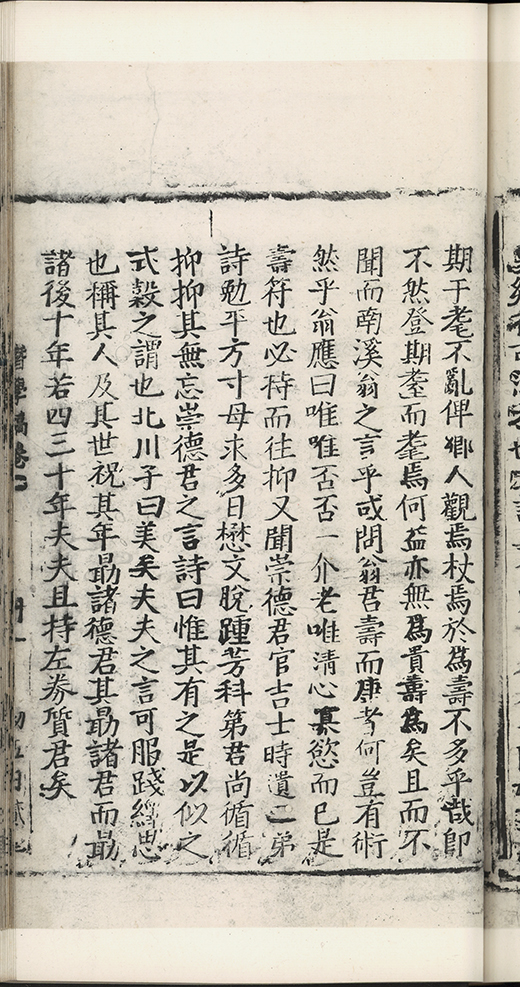 期于耄不亂俾鄉人觀焉杖焉於爲壽不多乎哉卽
不然登期耋而耄焉何益亦無爲貴壽爲矣且而不
聞而南溪翁之言乎或問翁君壽而康考何豈有術
然乎翁應曰唯唯否否一介老唯淸心寡慾而已是
壽符也必持而往抑又聞崇德君官吉士時遺二弟
詩勉平方寸毋求多日懋文脫踵芳科第君尚循循
抑抑其無忘崇德君之言詩曰惟其有之是以似之
式穀之謂也北川子曰美矣夫夫之言可服踐繹思
也稱其人及其世祝其年勗諸德君其勗諸君而勗
諸後十年若四三十年夫夫且持左券質君矣
稿卷